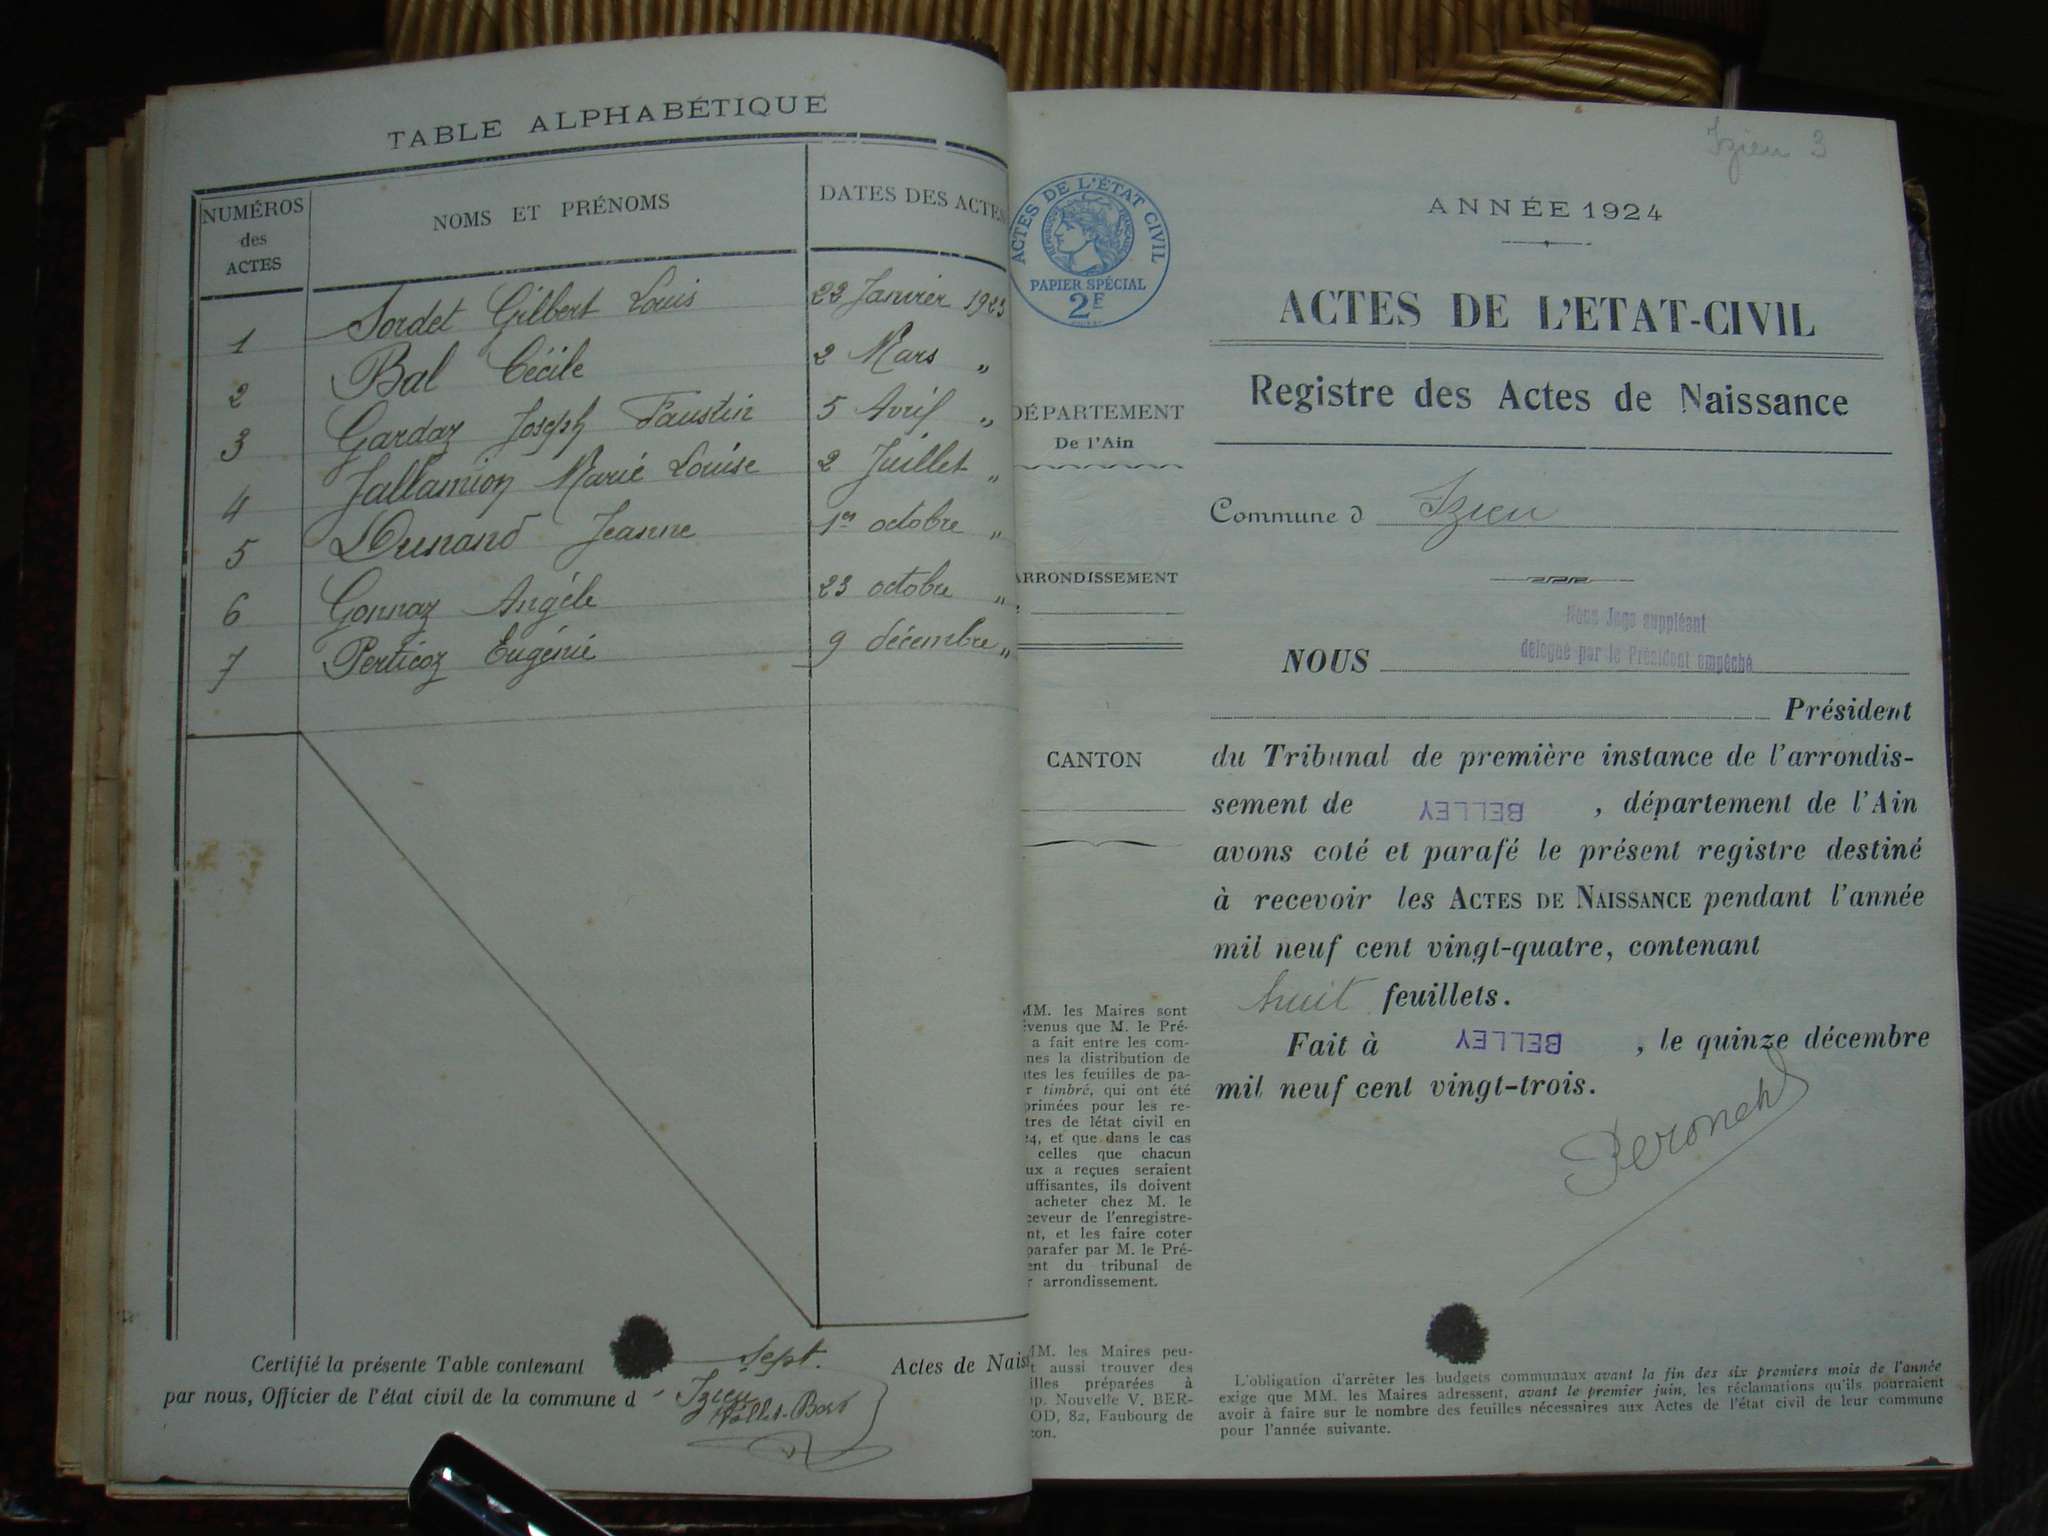 TABLE ALPHABÉTIQUE
NUMÉROS des ACTES
NOMS ET PRÉNOMS
DATES DES ACTES
1 Sordet Gilbert Louis 22 Janvier 1923
2 Bal Cécile 2 Mars "
3 Gardaz Joseph Faustin 5 Avril "
4 Jallamion Marie Louise 2 Juillet "
5 Dunand Jeanne 1er octobre "
6 Gonnaz Angèle 23 octobre "
7 Perticoz Eugénie 9 décembre "
Certifié la présente Table contenant sept. Actes de Nais
par nous, Officier de l'état civil de la commune d Izieu
Izieu 3
ACTES DE L'ÉTAT CIVIL
RÉPUBLIQUE FRANÇAISE
PAPIER SPÉCIAL
2F
DÉPARTEMENT
De l'Ain
ARRONDISSEMENT
CANTON
MM. les Maires sont
venus que M. le Pré-
a fait entre les com-
nes la distribution de
tes les feuilles de pa-
r timbré, qui ont été
primées pour les re-
tres de létat civil en
24, et que dans le cas
celles que chacun
ux a reçues seraient
uffisantes, ils doivent
acheter chez M. le
ceveur de l'enregistre-
nt, et les faire coter
parafer par M. le Pré-
ent du tribunal de
r arrondissement.
MM. les Maires peu-
t aussi trouver des
illes préparées à
p. Nouvelle V. BER-
OD, 82, Faubourg de
con.
ANNÉE 1924
ACTES DE L'ETAT-CIVIL
Registre des Actes de Naissance
Commune d Izieu
Nous Juge suppléant
délégué par le Président empêché
NOUS
Président
du Tribunal de première instance de l'arrondis-
sement de BELLEY, département de l'Ain
avons coté et parafé le présent registre destiné
à recevoir les ACTES DE NAISSANCE pendant l'année
mil neuf cent vingt-quatre, contenant
huit feuillets.
Fait à BELLEY, le quinze décembre
mil neuf cent vingt-trois.
L'obligation d'arrêter les budgets communaux avant la fin des six premiers mois de l'année
exige que MM. les Maires adressent, avant le premier juin, les réclamations qu'ils pourraient
avoir à faire sur le nombre des feuilles nécessaires aux Actes de l'état civil de leur commune
pour l'année suivante.